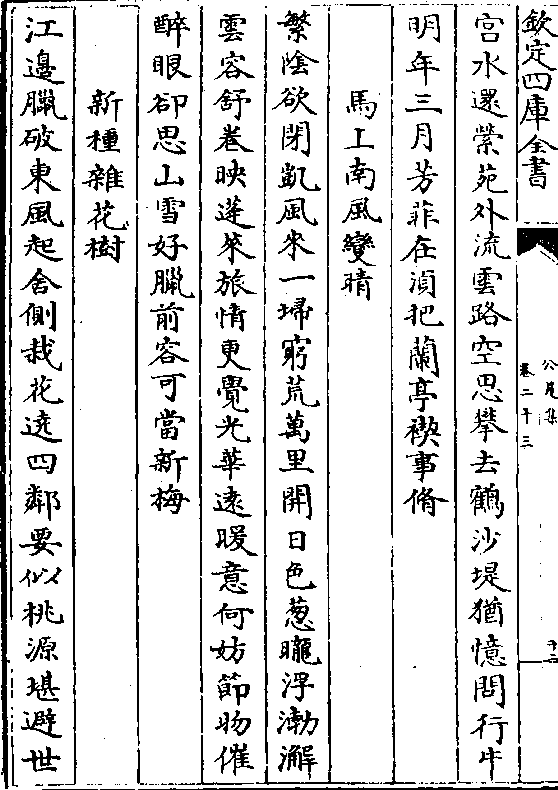 欽定四庫全書
公是集
卷二十三
十二
宫水還縈苑外流雲路空思攀去鶴沙堤猶憶問行牛
明年三月芳菲在湏把蘭亭禊事脩
馬上南風變晴
繁隂欲閉凱風來一埽窮荒萬里開日色葱曨浮渤澥
雲容舒卷映蓬萊旅情更覺光華遠暖意何妨節物催
醉眼卻思山雪好臘前容可當新梅
新種雜花樹
江邊臘破東風起舍側栽花遶四鄰要似桃源堪避世